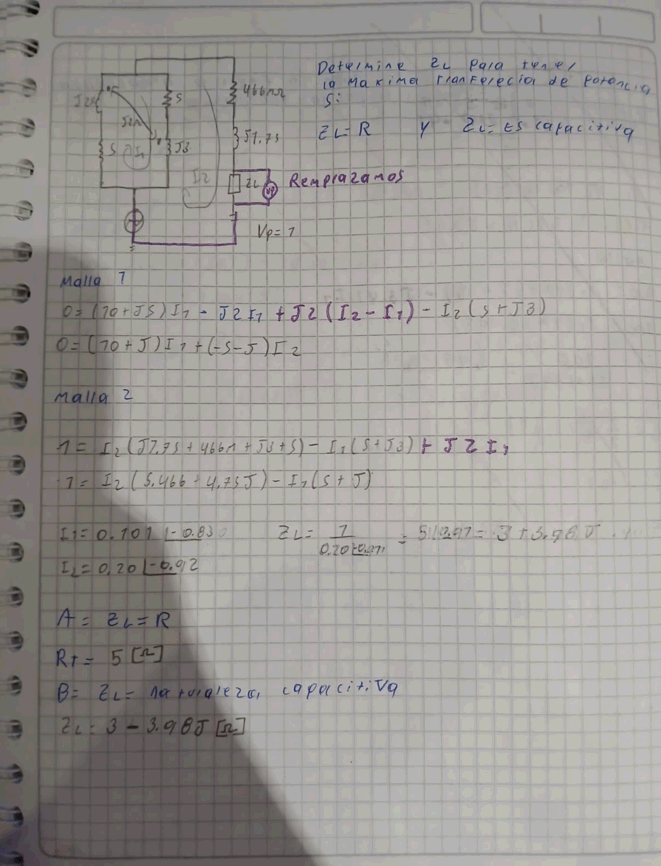 Determine ZL para tener
la Maxima tranferecia de potencia
si:
ZL=R y ZL= ES capacitiva
5
466mΩ
J1.75
J3
5
I1
I2
ZL
Vp
Remplazamos
Vp=1
Malla 1
0=(10+J5)I1 - J2I1 + J2(I2-I1) - I2(5+J3)
0=(10+J)I1+(-5-J)I2
Malla 2
1= I2(J1.75+466m+J3+5) - I1(5+J3) + J2I1
1= I2(5.466+4.75J) - I1(5+J)
I1= 0.101 ∠-0.83
ZL= 1 / 0.20∠-0.92 = 5∠0.92 = 3+3.98J
I2= 0,20 ∠-0.92
A= ZL=R
RT= 5 [Ω]
B= ZL= naturaleza capacitiva
ZL= 3 - 3.98J [Ω]